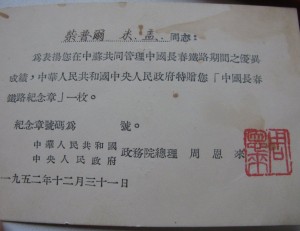 同志：
為表揚您在中蘇共同管理中國長春鐵路期間之優異
成績，中華人民共和國中央人民政府特贈您「中國長春
鐵路紀念章」一枚。
紀念章號碼為 號。
中華人民共和國
中央人民政府
政務院總理 周恩來
一九五二年十二月三十一日